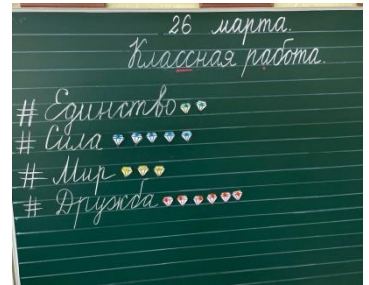 26 марта.
Классная работа.
# Единство
# Сила
# Мир
# Дружба